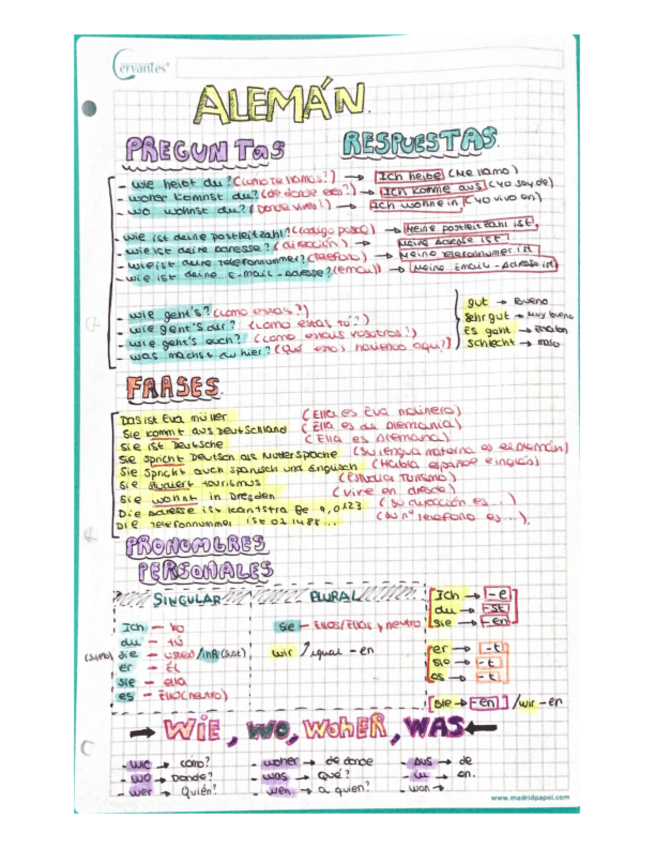 Cervantes
ALEMÁN.
PREGUNTAS
RESPUESTAS.
- wie heibt du? (como te llamas?) → Ich heibe (Me llamo)
- woher kommst du? (de donde eres?) → Ich komme aus (Yo soy de)
- wo wohnst du? (Donde vives?) → Ich wohne in (Yo vivo en)
- wie ist deine postleitzahl? (codigo postal) → Meine postleitzahl ist
- wie ist deine adresse? (dirección) → Meine Adresse ist
- wie ist deine Telefonnummer? (telefono) → Meine Telefonnummer ist
- wie ist deine E-mail-adresse? (email) → Meine Email-Adresse ist
- wie geht's? (como estas?)
- wie geht's dir? (como estas tú?)
- wie geht's euch? (como estais vosotros?)
- was machst du hier? (Qué estas haciendo aquí?)
gut → Bueno
sehr gut → Muy bueno
Es geht →
schlecht → malo
FRASES.
Das ist Eva müller (Ella es Eva molinero)
Sie kommt aus Deutschland (Ella es de Alemania)
Sie ist Deutsche (Ella es Alemana)
Sie spricht Deutsch als Muttersprache (Su lengua materna es el Alemán)
Sie spricht auch spanisch und Englisch (Habla español e inglés)
Sie studiert tourismus (Estudia Turismo)
Sie wohnt in Dresden (vive en dresde)
Die adresse ist kantstraße 9, 0123 (su dirección es...)
Die Telefonnummer ist 03 1488... (su nº telefono es...).
PRONOMBRES
PERSONALES
SINGULAR
PLURAL
Ich - Yo
du - tú
sie - usted / Ihr
er - Él
sie - ella
es - Ello (neutro)
sie - Ellos/Ellas y neutro
wir / igual - en
Ich → -e
du → -st
sie → -en
er → -t
sie → -t
es → -t
sie → -en / wir - en
→ WIE, WO, WOHER, WAS ←
- wie → cómo?
- wo → Donde?
- wer → Quién?
- woher → de donde
- was → Qué?
- wen → a quien?
- aus → de
- in → en.
- wan →
www.madridpapel.com